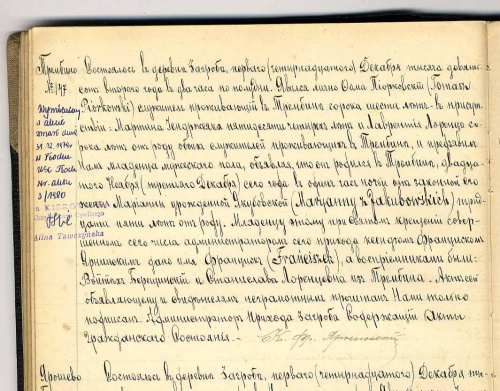 Трембино
№ 147
Состоялось въ деревнѣ Загроба, перваго (четырнадцатаго) Декабря тысяча девять-
сотъ втораго года въ два часа по полудни. Явился лично Ѳома Піорковскій (Tomasz
Piorkowski) служитель проживающій въ Трембинѣ сорока шести лѣтъ въ присут-
ствіи: Мартина Ендржеяка пятидесяти четырехъ лѣтъ и Лаврентія Лоренца со-
рока лѣтъ отъ роду обоихъ служителей проживающихъ въ Трембинѣ, и предъявилъ
Намъ младенца мужескаго пола, объявляя, что онъ родился въ Трембинѣ, двадца-
таго Ноября (третьяго Декабря) сего года въ часъ ночи отъ законной его
жены Маріанны урожденной Якубовской (Maryanny z Jakubowskich) трид-
цати пяти лѣтъ отъ роду. Младенцу этому при святомъ крещеніи совер-
шенномъ сего числа администраторомъ сего прихода ксендзомъ Францискомъ
дано имя Францискъ (Franciszek), а воспріемниками были:
Войтехъ и Станислава Лоренцовна изъ Трембина. Актъ сей
объявляющему и свидѣтелямъ неграмотнымъ прочитанъ Нами только
подписанъ. Администраторъ Прихода Загроба Содержащій Акты
Гражданскаго Состоянія. Кс. Фр.
Wymeldowany
z aktu
zmarł dnia
31.12.1979r
w Płocku
USC Płock
Nr. aktu
3/1980
KIEROWNIK
Alina
Ярошево
Состоялось въ деревнѣ Загроба, перваго (четырнадцатаго) Декабря ты-